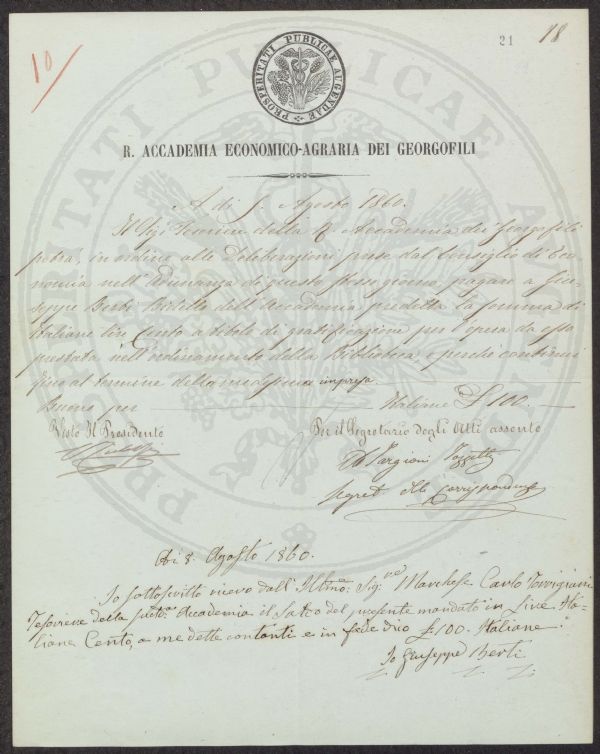 10
21
18
PROSPERITATI PUBLICAE AUGENDAE
R. ACCADEMIA ECONOMICO-AGRARIA DEI GEORGOFILI
A dì Agosto 1860.
Il Sig. Tesoriere della R. Accademia dei Georgofili
potrà, in ordine alle Deliberazioni prese dal Consiglio di Eco-
nomia nell'Adunanza di questo stesso giorno, pagare a Giu-
seppe Berti Bidello dell'Accademia predetta la somma di
Italiane Lire Cento a titolo di gratificazione per l'opera da esso
prestata nell'ordinamento della Biblioteca e perchè continui
fino al termine della medesima impresa.
Buono per Italiane £ 100.
Visto Il Presidente
Per il Segretario degli Atti assente
Targioni Tozzetti
Segret delle corrispondenze
A dì 8. Agosto 1860.
Io sottoscritto ricevo dall'Illmo: Sig.re Marchese Carlo Torrigiani
Tesoriere della Accademia il del presente mandato in Lire Ita-
liane Cento, a me dette contanti e in fede dico £ 100. Italiane
Io Giuseppe Berti